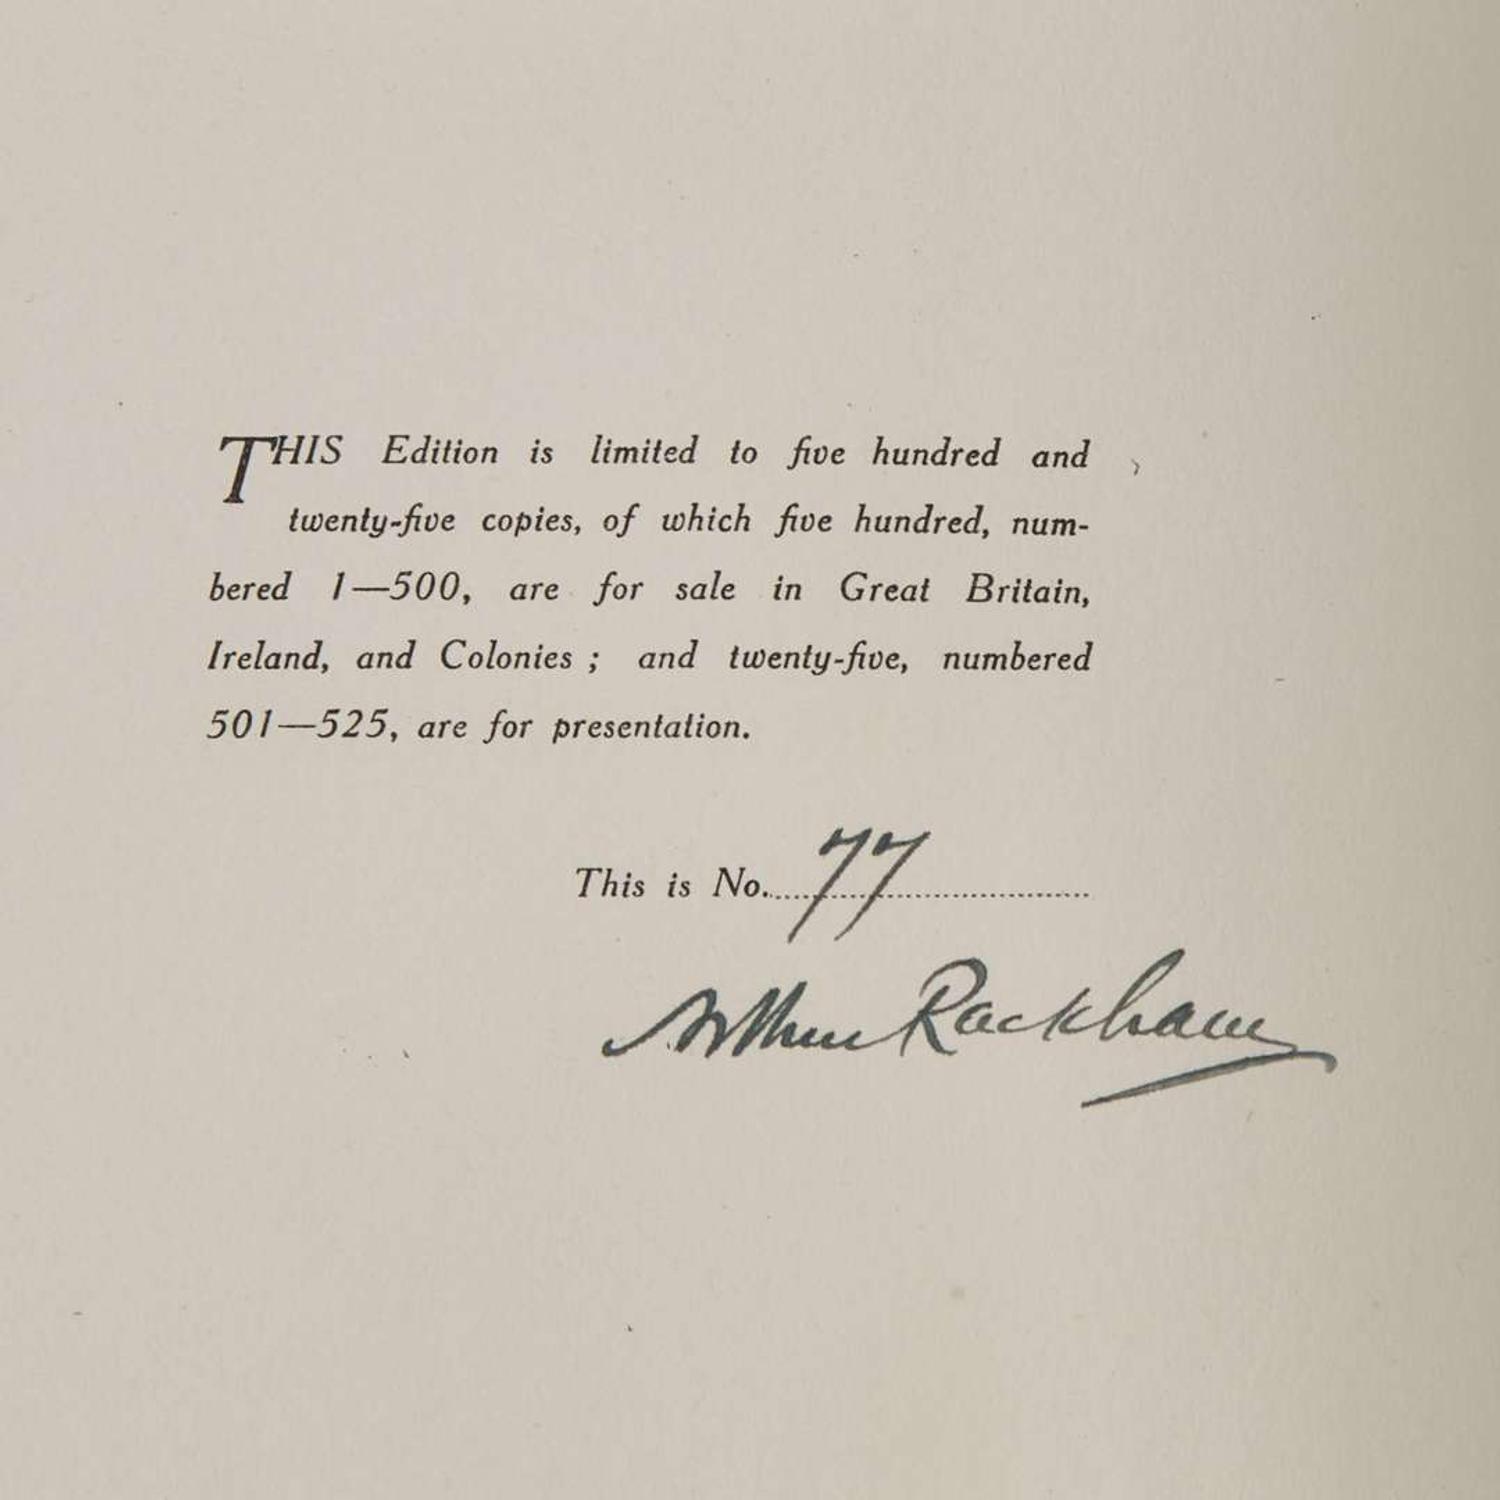 THIS Edition is limited to five hundred and
twenty-five copies, of which five hundred, num-
bered 1—500, are for sale in Great Britain,
Ireland, and Colonies ; and twenty-five, numbered
501—525, are for presentation.
This is No. 77
Arthur Rackham